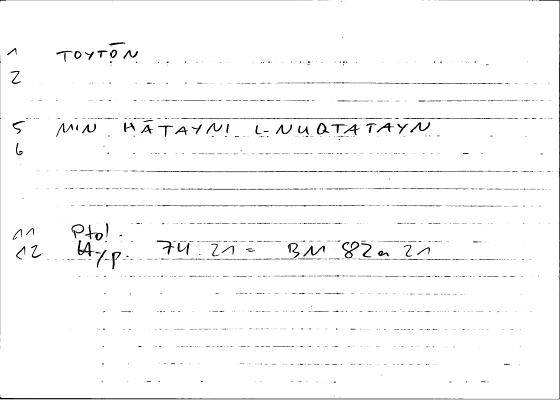 1 TOYTŌN
2
5 MIN HĀTAYNI L-NUQTATAYN
6
11 Ptol.
12 Hyp. 74.21 = BM 82a 21